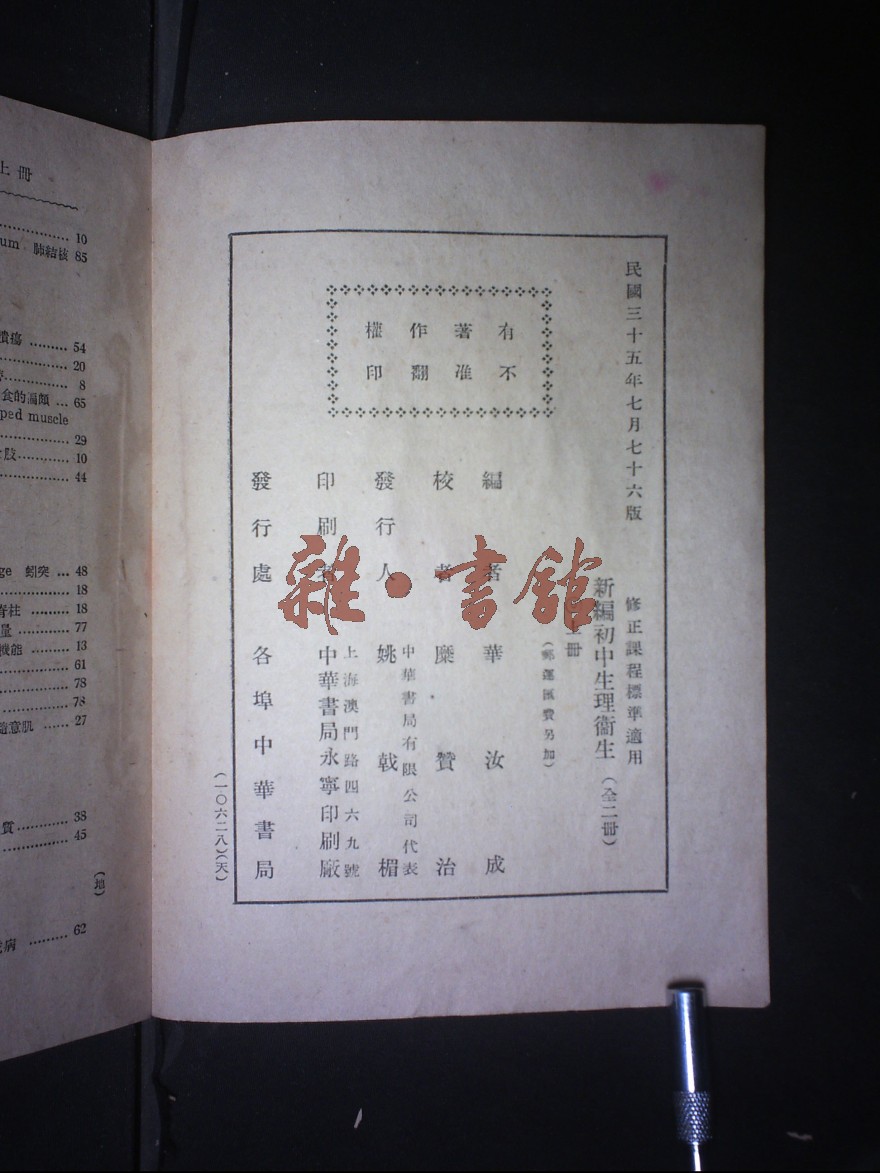 民國三十五年七月七十六版
修正課程標準適用
新編初中生理衞生（全二冊）
上冊
（郵運匯費另加）
有不
著准
作翻
權印
編者 華汝成
校者 糜贊治
發行人 中華書局有限公司代表
姚戟楣
印刷者 上海澳門路四六九號
中華書局永寧印刷廠
發行處 各埠中華書局
（一〇六二八）（天）
雜·書館
上冊
10
um 肺結核 85
潰瘍 54
20
8
食的溫頗 65
ped muscle
29
10
44
ge 蚓突 48
18
脊柱 18
量 77
機能 13
61
78
78
隨意肌 27
質 38
45
（地）
病 62